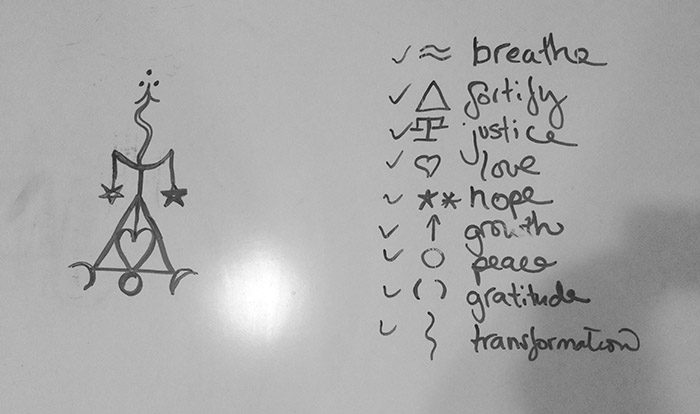 breathe
fortify
justice
love
hope
growth
peace
gratitude
transformation